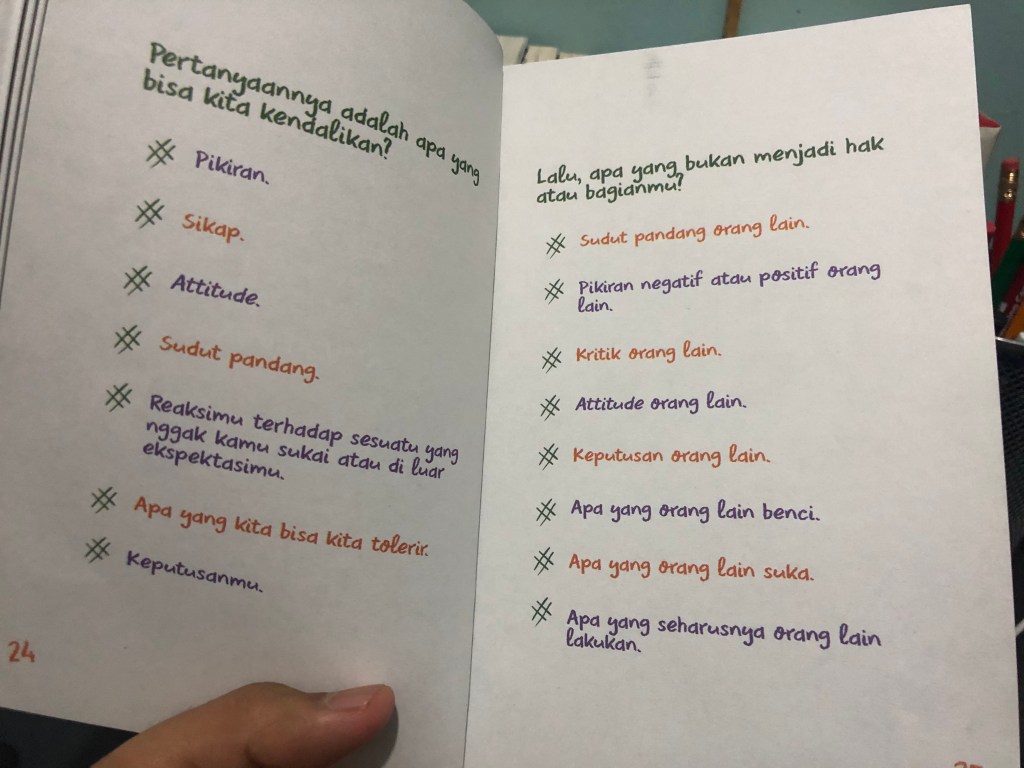 Pertanyaannya adalah apa yang
bisa kita kendalikan?
Pikiran.
Sikap.
Attitude.
Sudut pandang.
Reaksimu terhadap sesuatu yang
nggak kamu sukai atau di luar
ekspektasimu.
Apa yang kita bisa kita tolerir.
Keputusanmu.
24
Lalu, apa yang bukan menjadi hak
atau bagianmu?
Sudut pandang orang lain.
Pikiran negatif atau positif orang
lain.
Kritik orang lain.
Attitude orang lain.
Keputusan orang lain.
Apa yang orang lain benci.
Apa yang orang lain suka.
Apa yang seharusnya orang lain
lakukan.